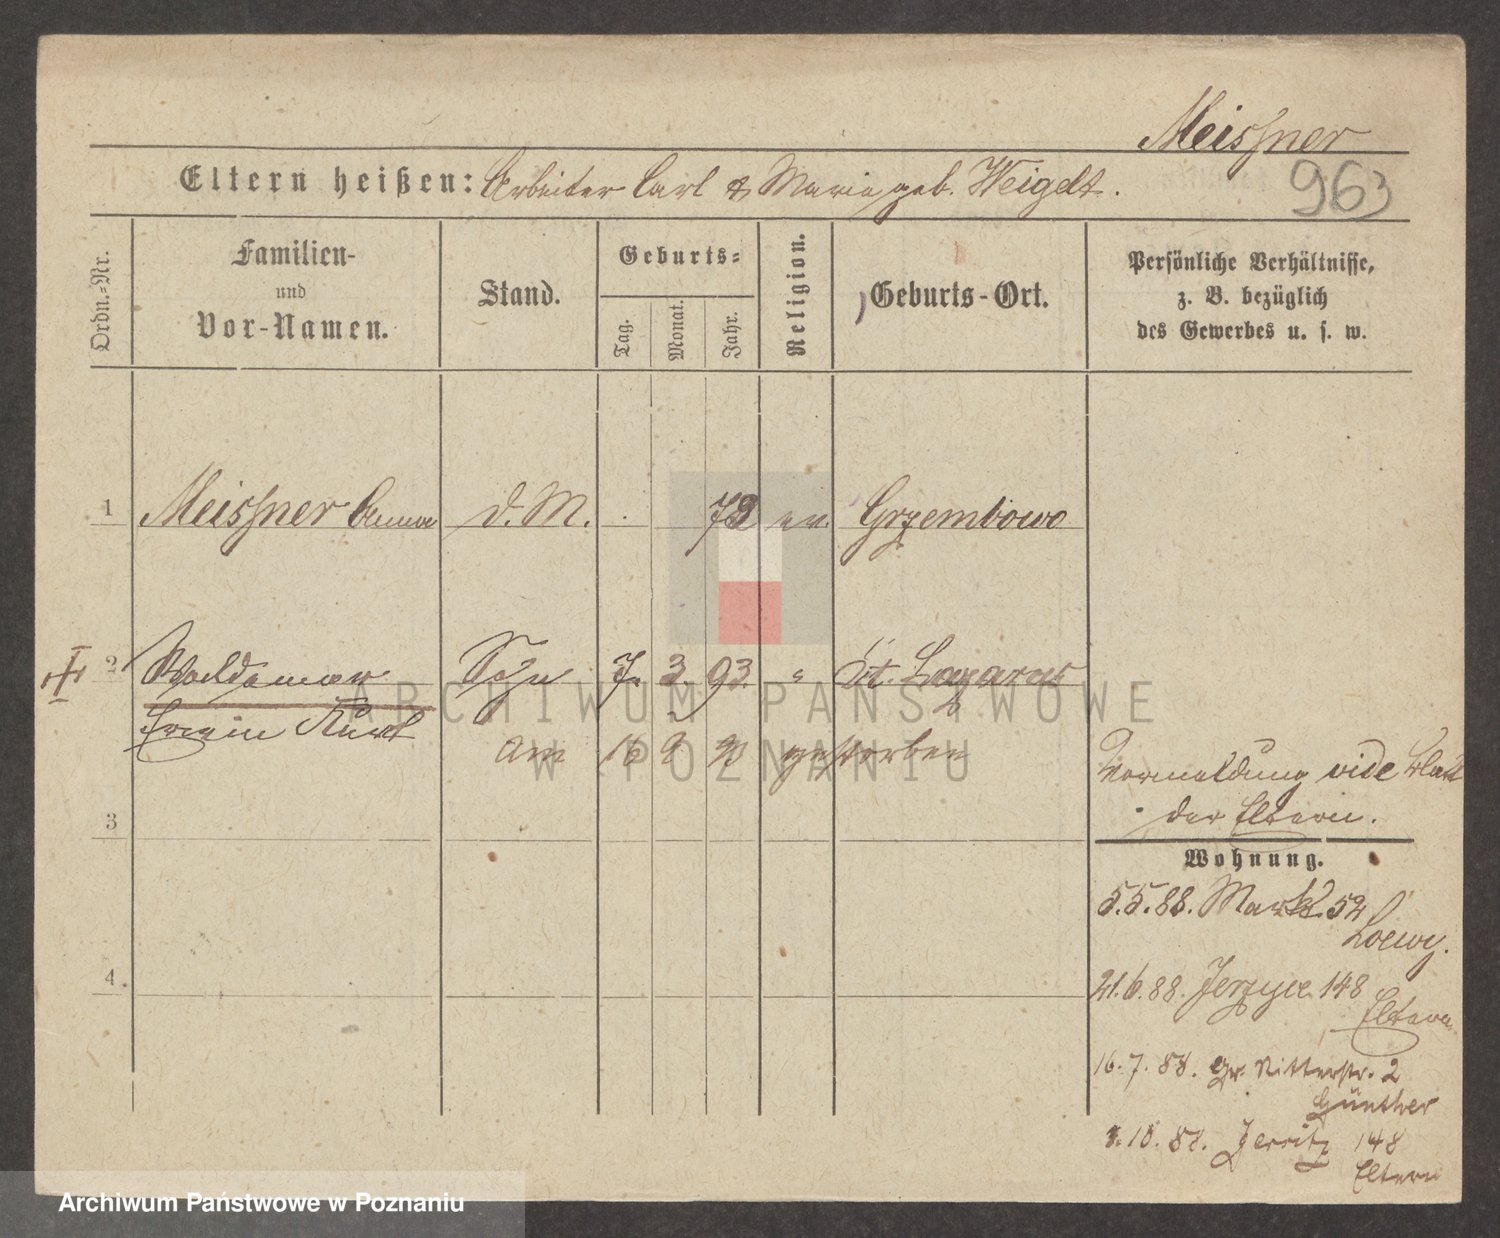 Meissner
Eltern heißen: Arbeiter Carl & Marie geb. Weigelt.
963
Ordn.-Nr.
Familien-
und
Vor-Namen.
Stand.
Geburts-
Tag.
Monat.
Jahr.
Religion.
Geburts-Ort.
Persönliche Verhältnisse,
z. B. bezüglich
des Gewerbes u. s. w.
1 Meissner Anna d. M. 73 ev. Grzembowo
2 Waldemar Sohn 7. 3. 93. " St. Lazarus
Erwin Kurt
am 16 9 93 gestorben
Vermeldung vide Blatt
der Eltern.
3
Wohnung.
5.5.88. Markt 52
Loewy.
4
21.6.88. Jerzyce 148
Eltern
16.7.88. Gr. Ritterstr. 2
Günther
1.10.88. Jersitz 148
Eltern
ARCHIWUM PAŃSTWOWE
W POZNANIU
Archiwum Państwowe w Poznaniu